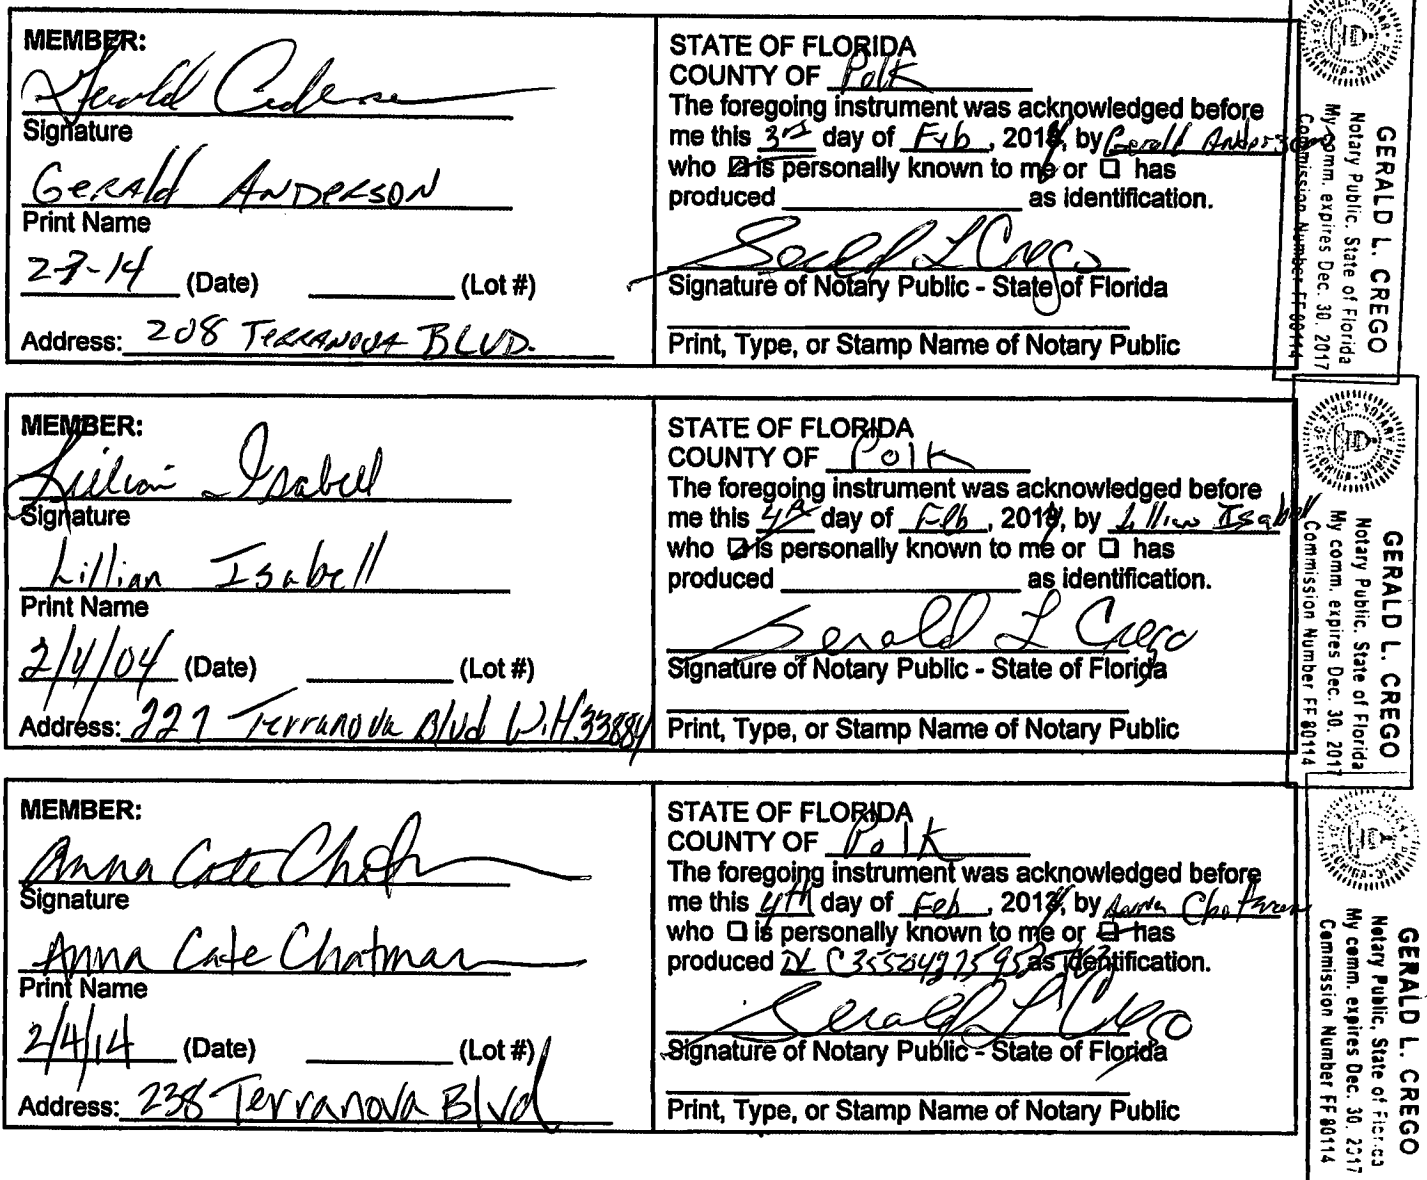 MEMBER:
Gerald Anderson
Signature
GERALD ANDERSON
Print Name
2-3-14 (Date) (Lot #)
Address: 208 TERRANOVA BLVD.
STATE OF FLORIDA
COUNTY OF Polk
The foregoing instrument was acknowledged before
me this 3rd day of Feb, 2014, by Gerald Anderson
who is personally known to me or has
produced as identification.
Gerald L Crego
Signature of Notary Public - State of Florida
Print, Type, or Stamp Name of Notary Public
GERALD L. CREGO
Notary Public, State of Florida
My comm. expires Dec. 30, 2017
Commission Number FF 80114
MEMBER:
Lillian Isabell
Signature
Lillian Isabell
Print Name
2/4/04 (Date) (Lot #)
Address: 227 Terranova Blvd W.H 33884
STATE OF FLORIDA
COUNTY OF Polk
The foregoing instrument was acknowledged before
me this 4th day of Feb, 2014, by Lillian Isabell
who is personally known to me or has
produced as identification.
Gerald L Crego
Signature of Notary Public - State of Florida
Print, Type, or Stamp Name of Notary Public
GERALD L. CREGO
Notary Public, State of Florida
My comm. expires Dec. 30, 2017
Commission Number FF 80114
MEMBER:
Anna Cate Chatman
Signature
Anna Cate Chatman
Print Name
2/4/14 (Date) (Lot #)
Address: 238 Terranova Blvd
STATE OF FLORIDA
COUNTY OF Polk
The foregoing instrument was acknowledged before
me this 4th day of Feb, 2014, by Anna Chatman
who is personally known to me or has
produced DL as identification.
Gerald L Crego
Signature of Notary Public - State of Florida
Print, Type, or Stamp Name of Notary Public
GERALD L. CREGO
Notary Public, State of Florida
My comm. expires Dec. 30, 2017
Commission Number FF 80114